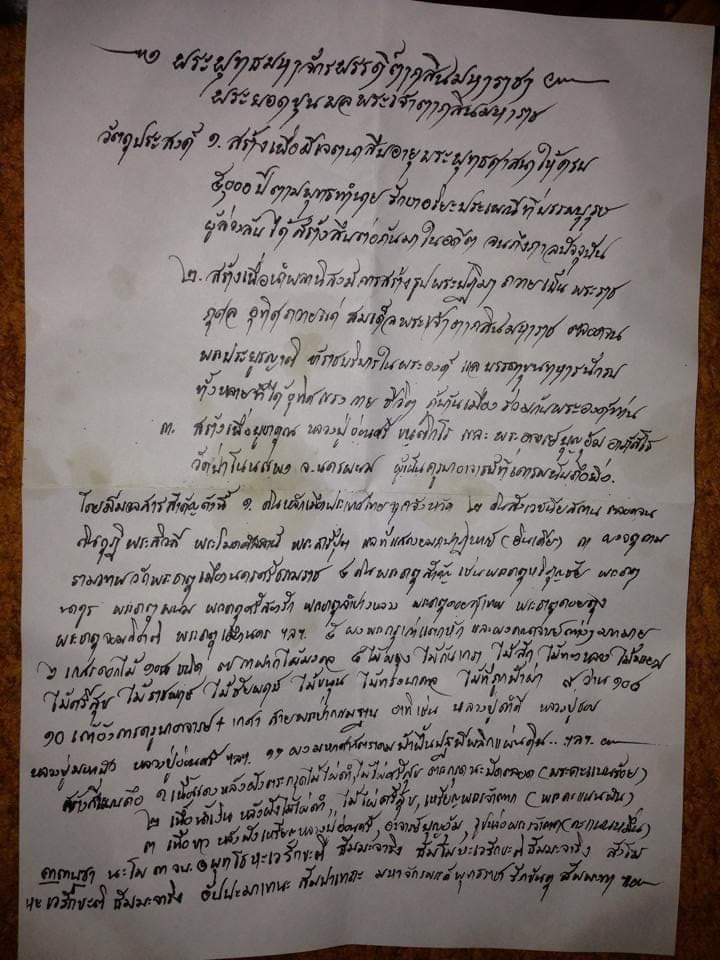 ๑ พระพุทธมหาจักรพรรดิ์ตากสินมหาราชา
พระยอดขุนพลพระเจ้าตากสินมหาราช
วัตถุประสงค์ ๑. สร้างเพื่อมีเจตนาสืบอายุพระพุทธศาสนาให้ครบ
๕,๐๐๐ ปี ตามพุทธทำนาย รักษาอริยะประเพณีที่บรรพบุรุษ
ผู้ล่วงลับได้สร้างสืบต่อกันมาในอดีต จนถึงกาลปัจจุบัน
๒. สร้างเพื่อนำผลานิสงส์การสร้างรูปพระปฏิมา ถวายเป็นพระราช
กุศล อุทิศถวายแด่ สมเด็จพระเจ้าตากสินมหาราช ตลอดจน
พระประยูรญาติ ข้าราชบริพารในพระองค์ และบรรดาขุนทหารนักรบ
ทั้งหลายที่ได้อุทิศแรงกาย ชีวิต กู้บ้านเมืองร่วมกับพระองค์ท่าน
๓. สร้างเพื่อบูชาคุณ หลวงปู่อ่อนศรี และ พระอาจารย์บุญอุ้ม
วัดป่าโนนแพง จ.นครพนม ผู้เป็นครูบาอาจารย์ที่เคารพนับถือยิ่ง.
โดยมีมวลสารสำคัญดังนี้ ๑. ดินหลักเมืองประเทศไทยทุกจังหวัด ๒ ดินสังเวชนียสถาน ตลอดจน
ดินกุฏิ พระสิวลี พระโมคคัลลาน์ พระสารีบุตร และที่แสดงยมกปาฏิหาริย์ (อินเดีย) ๓ ผงจตุคาม
รามเทพ วัดพระธาตุเมืองนครศรีธรรมราช ๔ ดินพระธาตุสำคัญ เช่นพระธาตุหริภุญชัย พระธาตุ
พระธาตุพนม พระธาตุศรีสองรัก พระธาตุลำปางหลวง พระธาตุดอยสุเทพ พระธาตุดอยตุง
พระธาตุจอมกิตติ พระธาตุเมืองนคร ฯลฯ. ๕ ผงพระกรุเก่าแตกหัก และผงคณาจารย์ต่างๆมากมาย
๖ เกสรดอกไม้ ๑๐๘ ชนิด ๗ กาฝากไม้มงคล ๘ ไม้พยุง ไม้กันเกรา ไม้สัก ไม้ทองหลาง
ไม้ศรีสุข ไม้ราชพฤกษ์ ไม้ชัยพฤกษ์ ไม้ขนุน ไม้ที่ถูกฟ้าผ่า ๙ ว่าน ๑๐๘
๑๐ ครูบาอาจารย์ + เกศา สายพระป่ากรรมฐาน อาทิเช่น หลวงปู่คำดี หลวงปู่
หลวงปู่ หลวงปู่อ่อนศรี ฯลฯ. ๑๑ ผงมหาศาสตราคมฟ้าฟื้นปฐพีพลิกแผ่นดิน.. ฯลฯ.
๑ เนื้อแดง หลังฝังตะกรุดไม้ไผ่ดำ, ไม้ไผ่ศรีสุข ตลอด (พระคะแนนร้อย)
๒ เนื้อน้ำเงิน หลังฝังไม้ไผ่ดำ, ไม้ไผ่ศรีสุข, เหรียญพระเจ้าตาก (พระคะแนนพัน)
๓ เนื้อขาว หลังฝังเหรียญหลวงปู่อ่อนศรี, อาจารย์บุญอุ้ม, รูปหล่อพระเจ้าตาก (คะแนนหมื่น)
คาถาบูชา นะโม ๓ จบ. พุทโธ
นะ อัปปะมาเทนะ สัมปาเทถะ มหาจักรพรรดิ์พุทธราช รักขันตุ